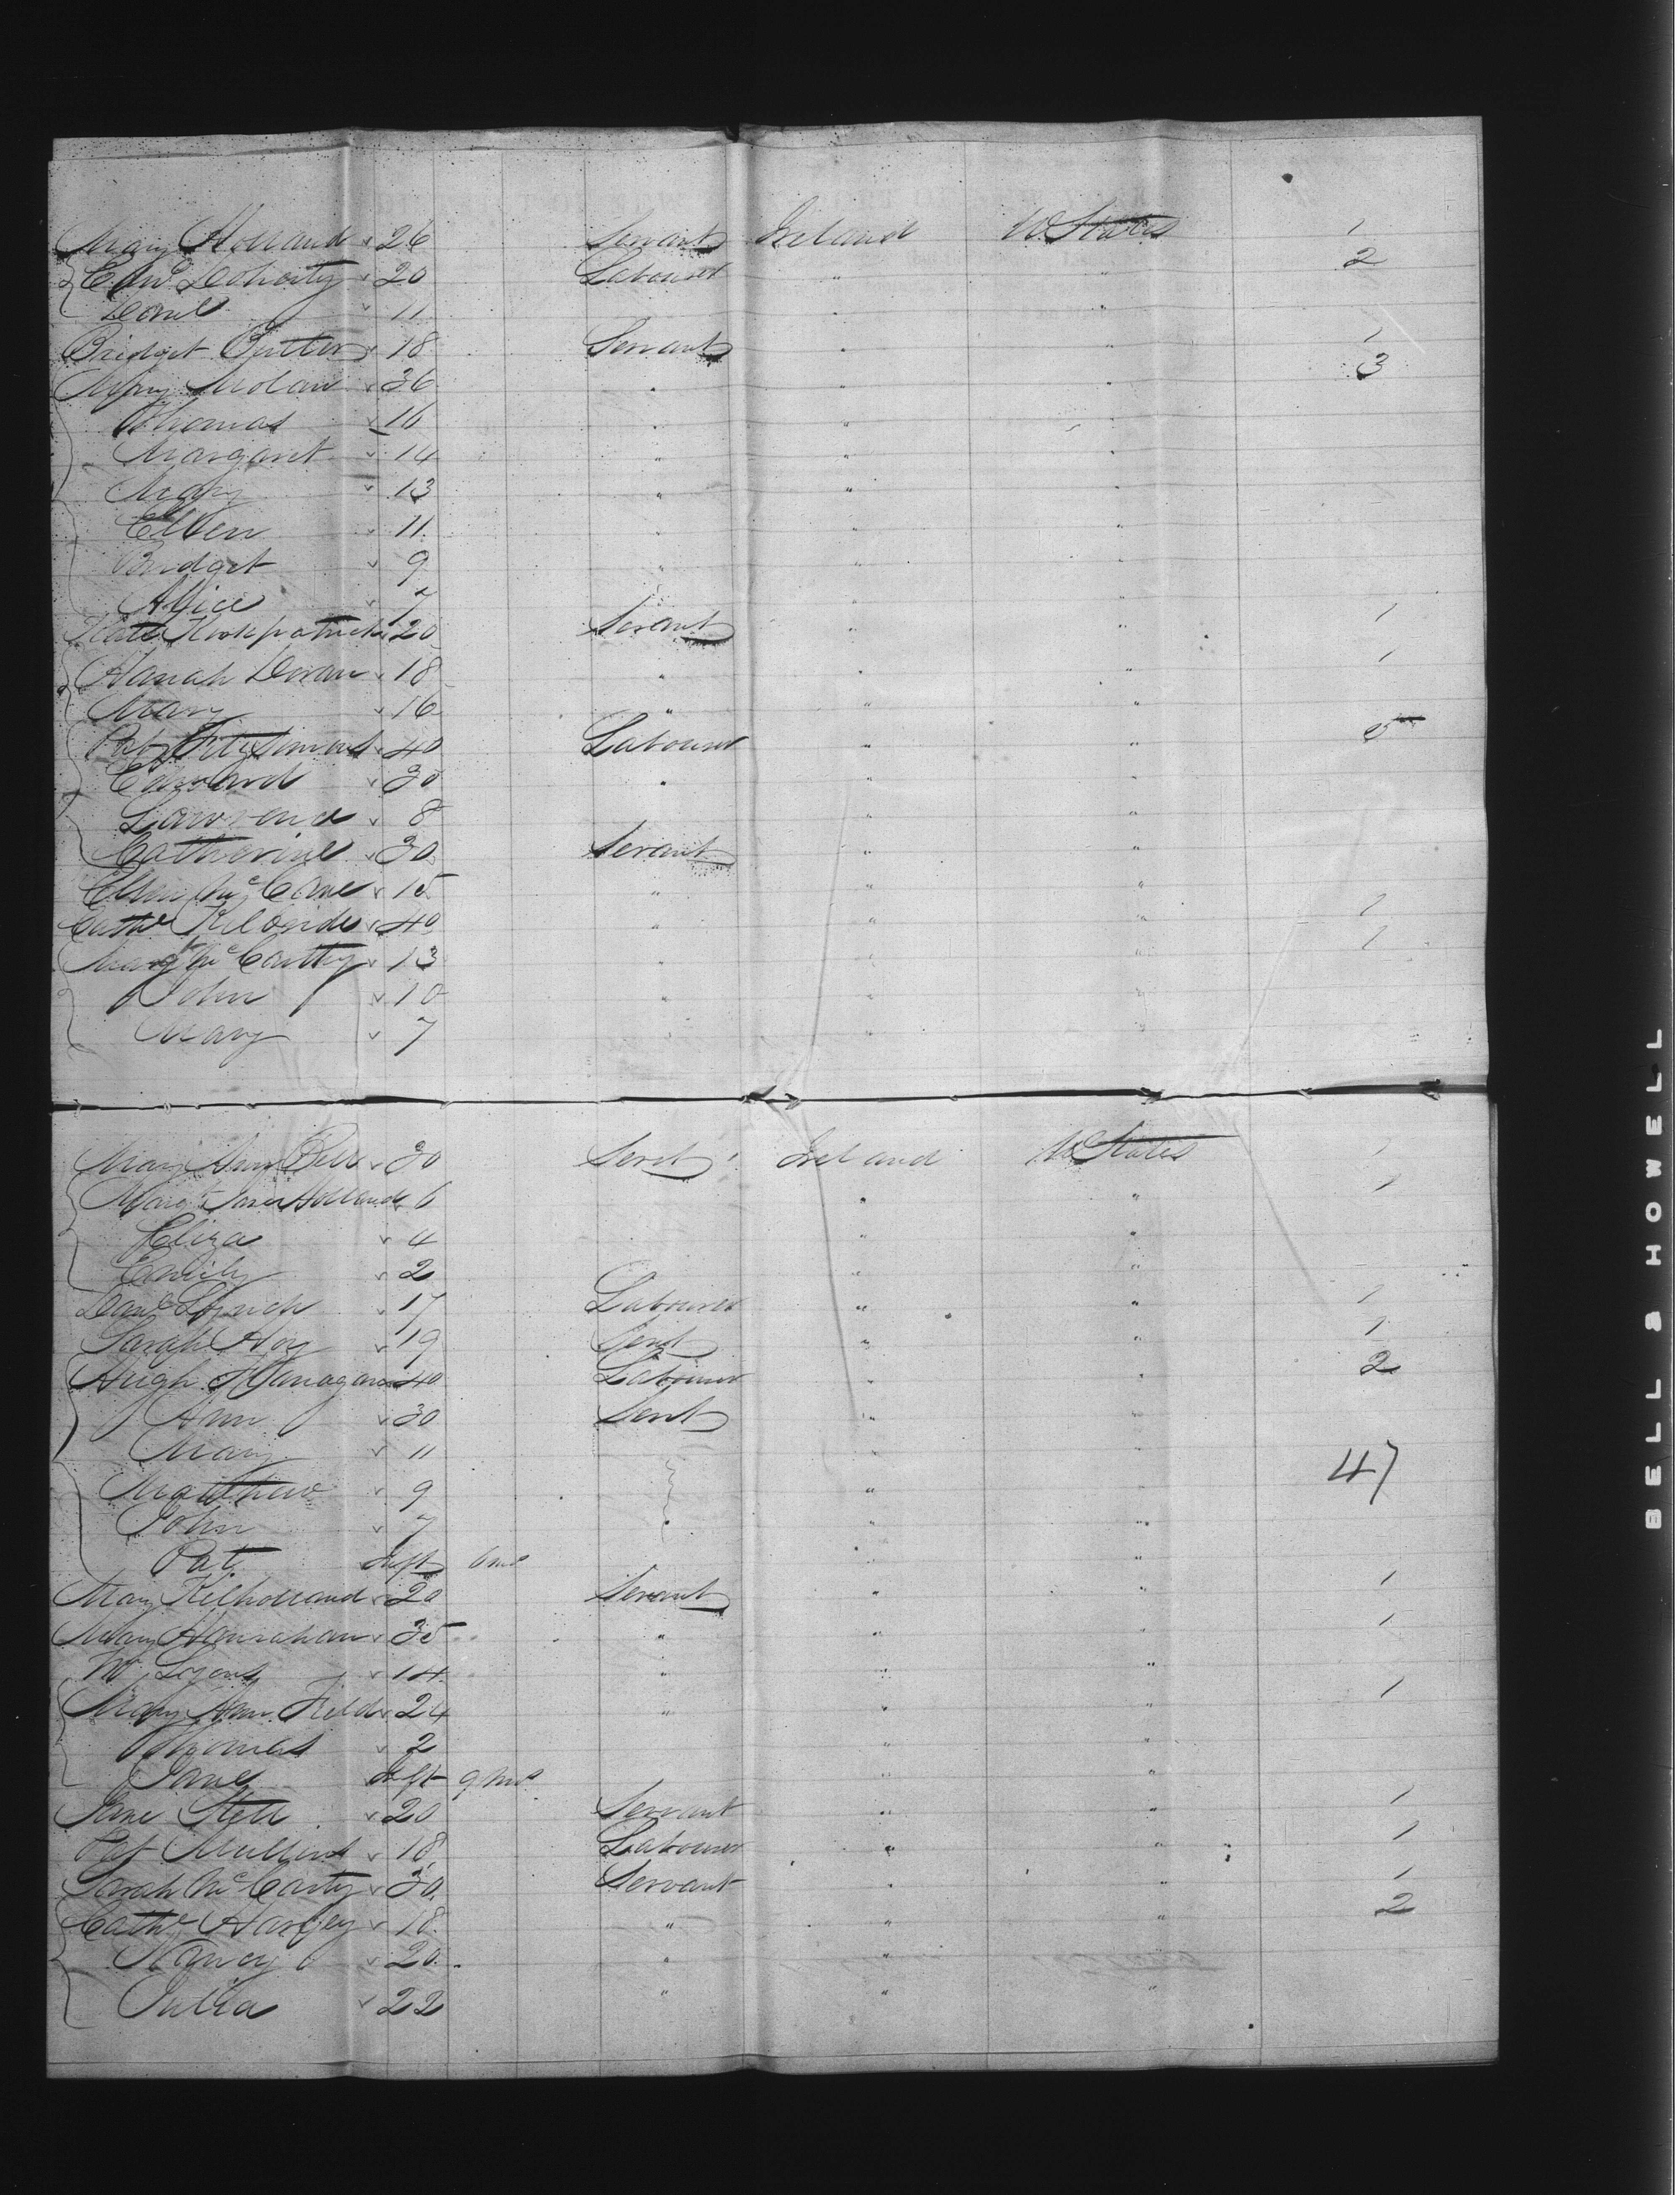 Mary Holland 26 Servant Ireland U States 1
Edwd Dohorty 20 Labourer " " 2
11 " "
Bridget Butler 18 Servant " " 1
Mary Nolan 36 " " " 3
Thomas 16 " " "
Margaret 14 " " "
Mary 13 " " "
Ellen 11 " " "
Bridget 9 " " "
Alice 7 " " "
Kate Kirkpatrick 20 Servant " " 1
Hanah Doran 18 " " " 1
Mary 16 " " "
Pat Fitzsimons 40 Labourer " " 5
Edward 30 " " "
Lawrence 8 " "
Catherine 30 Servant " "
Ellen McCane 15 " " "
Cathe 40 " " " 1
Margt McCarthy 13 " " " 1
John 10 " " "
Mary 7 " " "
Mary Ann Bell 30 Servt Ireland U States 1
Margt Jane Holland 6 " " 1
Eliza 4 " "
Emily 2 " "
Danl Lynch 17 Labourer " " 1
Sarah Hoy 19 Servt " " 1
Hugh Flanagan 40 Labourer " " 2
Ann 30 Servt " "
Mary 11 " "
47
Matthew 9 " "
John 7 " "
Pat Inft 6 mos " "
Mary Kilholland 20 Servant " " 1
Mary Hanrahan 35 " " " 1
W Lyons 14 " " "
Mary Ann Field 24 " " " 1
Thomas 2 " "
Jane Inft 9 mos " "
Jane 20 Servant " " 1
Pat Mullins 18 Labourer " " 1
Sarah McCarty 30 Servant " " 1
Cathe 18 " " " 2
Nancy 20 " "
Julia 22 " " "
BELL & HOWELL